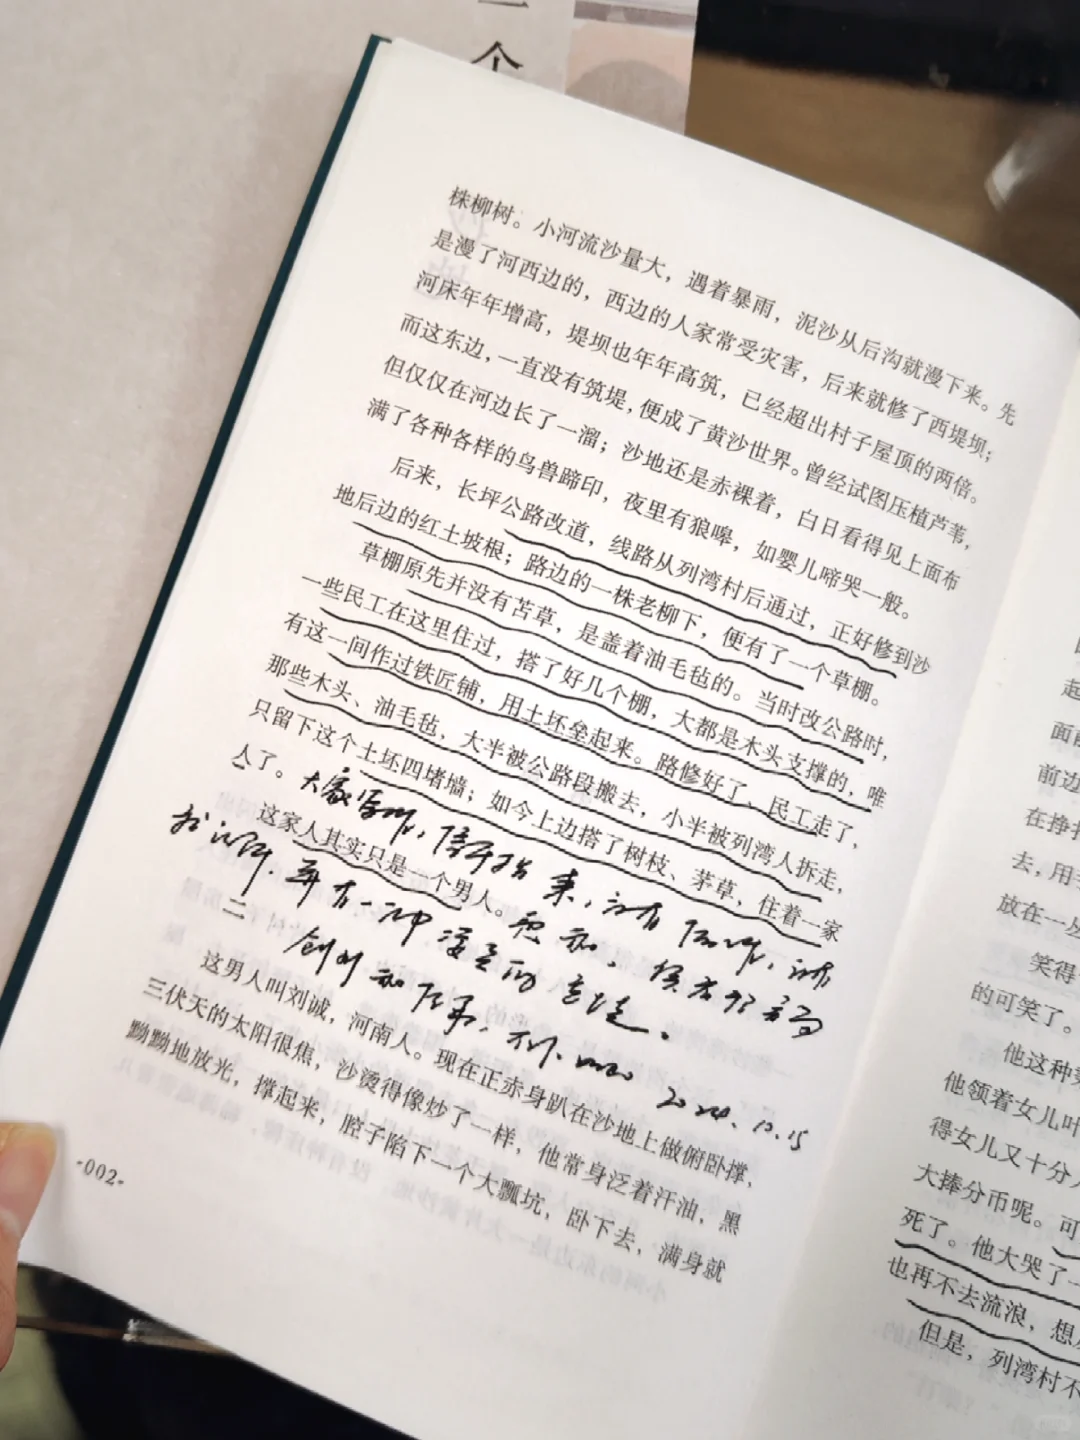 一个
株柳树。小河流沙量大，遇着暴雨，泥沙从后沟就漫下来。先
是漫了河西边的，西边的人家常受灾害，后来就修了西堤坝；
河床年年增高，堤坝也年年高筑，已经超出村子屋顶的两倍。
而这东边，一直没有筑堤，便成了黄沙世界。曾经试图压植芦苇，
但仅仅在河边长了一溜；沙地还是赤裸着，白日看得见上面布
满了各种各样的鸟兽蹄印，夜里有狼嗥，如婴儿啼哭一般。
后来，长坪公路改道，线路从列湾村后通过，正好修到沙
地后边的红土坡根；路边的一株老柳下，便有了一个草棚。
草棚原先并没有苫草，是盖着油毛毡的。当时改公路时，
一些民工在这里住过，搭了好几个棚，大都是木头支撑的，唯
有这一间作过铁匠铺，用土坯垒起来。路修好了、民工走了，
那些木头、油毛毡，大半被公路段搬去，小半被列湾人拆走，
只留下这个土坯四堵墙；如今上边搭了树枝、茅草，住着一家
人了。
这家人其实只是一个男人。
2024.12.15
二
这男人叫刘诚，河南人。现在正赤身趴在沙地上做俯卧撑，
三伏天的太阳很焦，沙烫得像炒了一样，他常身泛着汗油，黑
黝黝地放光，撑起来，腔子陷下一个大瓢坑，卧下去，满身就
-002-
起
面前
前边
在挣扎
去，用
放在一丛
笑得
的可笑了。
他这种
他领着女儿
得女儿又十分
大捧分币呢。可
死了。他大哭了一
也再不去流浪，想
但是，列湾村不